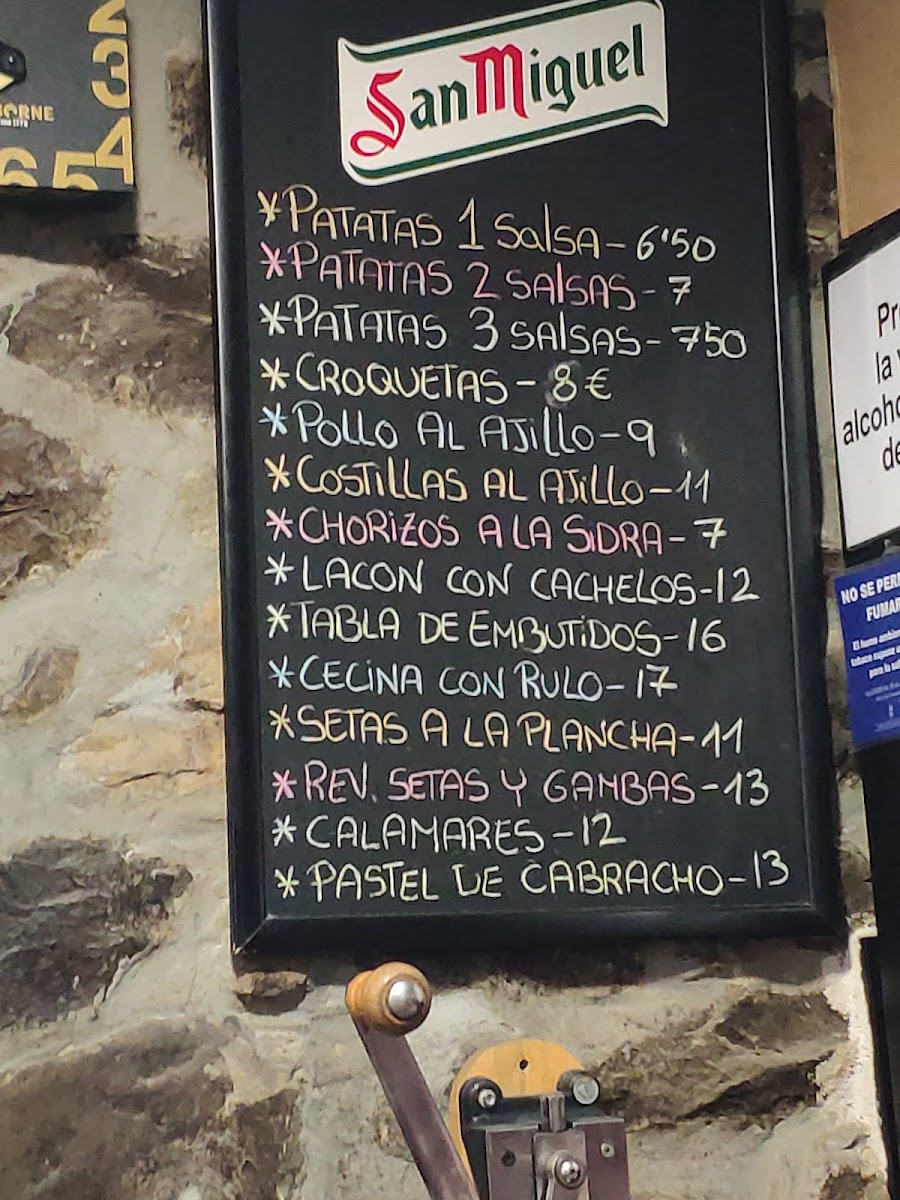 San Miguel
*PATATAS 1 SALSA - 6'50
*PATATAS 2 SALSAS - 7
*PATATAS 3 SALSAS - 750
*CROQUETAS - 8 €
*POLLO AL AJILLO - 9
*COSTILLAS AL AJILLO - 11
*CHORIZOS A LA SIDRA - 7
*LACON CON CACHELOS - 12
*TABLA DE EMBUTIDOS - 16
*CECINA CON RULO - 17
*SETAS A LA PLANCHA - 11
*REV. SETAS Y GAMBAS - 13
*CALAMARES - 12
*PASTEL DE CABRACHO - 13
2
3
4
5
6
la
alcoho
de
NO SE PER
FUMAR